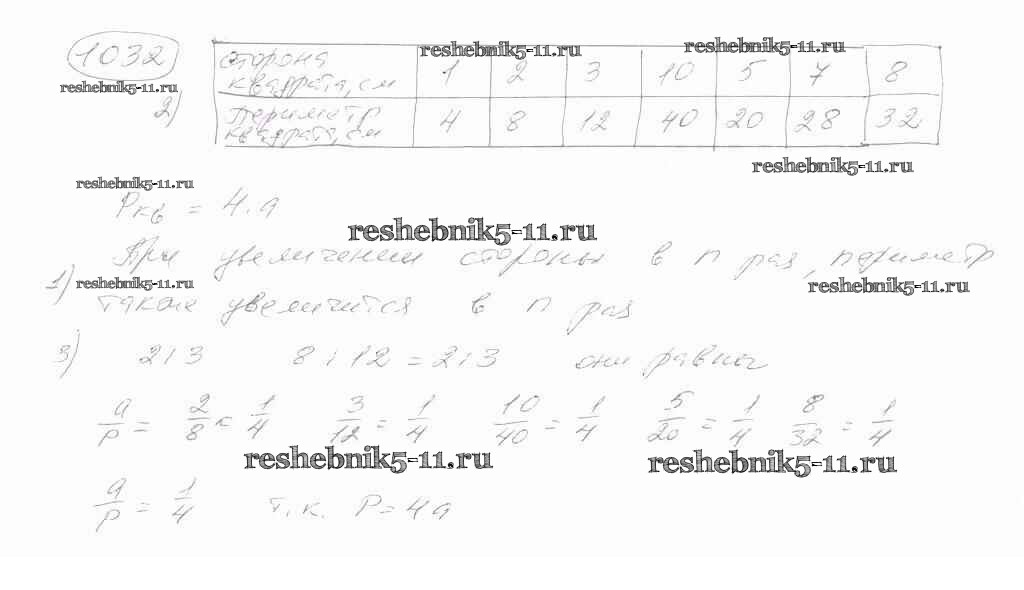 1032
reshebnik5-11.ru
reshebnik5-11.ru
reshebnik5-11.ru
2)
сторона квадрата, см 1 2 3 10 5 7 8
периметр квадрата, см 4 8 12 40 20 28 32
reshebnik5-11.ru
reshebnik5-11.ru
Pкв = 4·a
reshebnik5-11.ru
При увеличении стороны в n раз, периметр
1) reshebnik5-11.ru
reshebnik5-11.ru
также увеличится в n раз
3) 2:3 8:12 = 2:3 они равны
a/p = 2/8 = 1/4 3/12 = 1/4 10/40 = 1/4 5/20 = 1/4 8/32 = 1/4
reshebnik5-11.ru
reshebnik5-11.ru
a/p = 1/4 т.к. P=4a